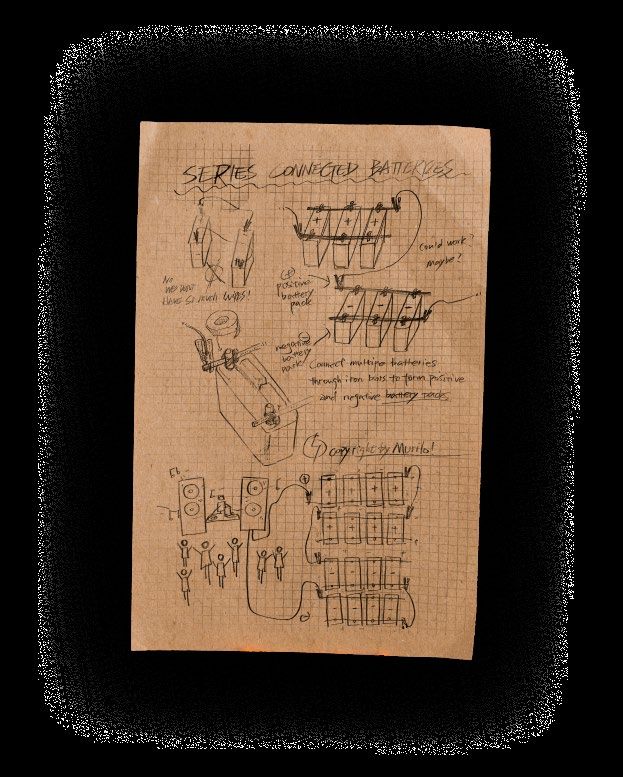 SERIES CONNECTED BATTERIES
Could work?
maybe!
No
WE DON'T
HAVE SO MUCH WIRES!
⊕
positive
battery
pack
⊖
negative
battery
pack
Connect multiple batteries
through iron bars to form positive
and negative battery packs.
copyright by Murilo!